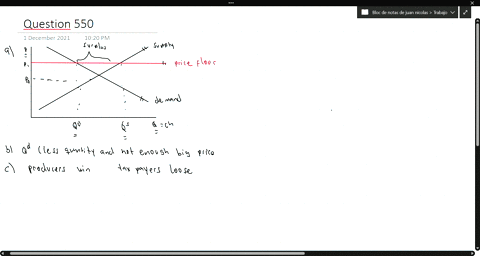 Bloc de notas de juan nicolas > Trabajo
Question 550
1 December 2021 10:20 PM
a)
surplus
supply
price floor
demand
b) Qd (less quntity and not enough big price
c) producers win tax payers loose